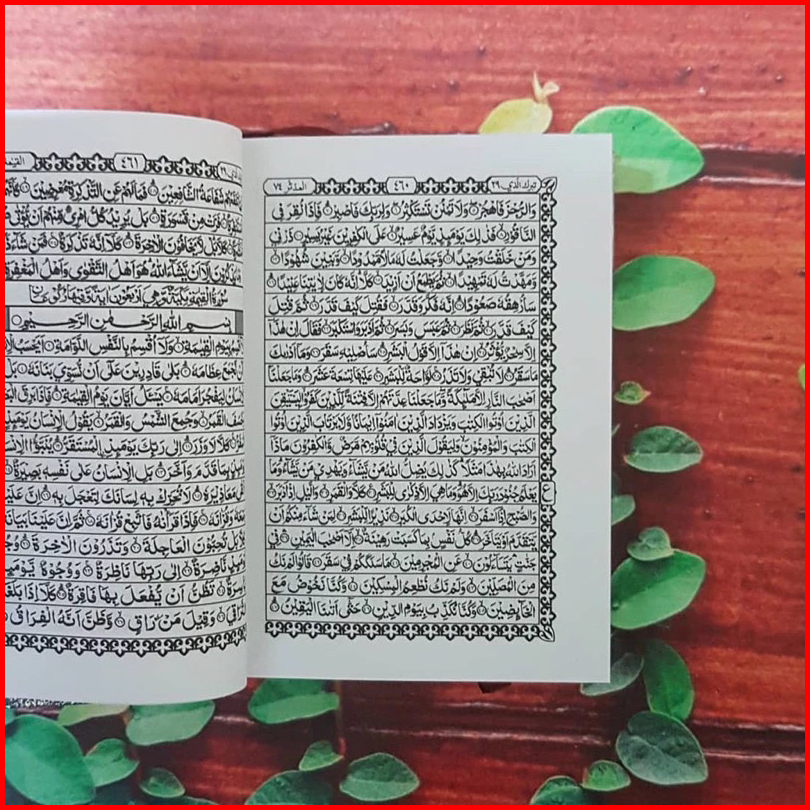 تبرك الذي ٢٩ ٤٦٠ المدثر ٧٤
وَالرُّجْزَ فَاهْجُرْ وَلَا تَمْنُنْ تَسْتَكْثِرُ وَلِرَبِّكَ فَاصْبِرْ فَإِذَا نُقِرَ فِي
النَّاقُورِ فَذٰلِكَ يَوْمَئِذٍ يَوْمٌ عَسِيرٌ عَلَى الْكٰفِرِينَ غَيْرُ يَسِيرٍ ذَرْنِي
وَمَنْ خَلَقْتُ وَحِيدًا وَجَعَلْتُ لَهُ مَالًا مَمْدُودًا وَبَنِينَ شُهُودًا
وَمَهَّدْتُ لَهُ تَمْهِيدًا ثُمَّ يَطْمَعُ أَنْ أَزِيدَ كَلَّا إِنَّهُ كَانَ لِاٰيٰتِنَا عَنِيدًا
سَأُرْهِقُهُ صَعُودًا إِنَّهُ فَكَّرَ وَقَدَّرَ فَقُتِلَ كَيْفَ قَدَّرَ ثُمَّ قُتِلَ
كَيْفَ قَدَّرَ ثُمَّ نَظَرَ ثُمَّ عَبَسَ وَبَسَرَ ثُمَّ أَدْبَرَ وَاسْتَكْبَرَ فَقَالَ إِنْ هٰذَا
إِلَّا سِحْرٌ يُؤْثَرُ إِنْ هٰذَا إِلَّا قَوْلُ الْبَشَرِ سَأُصْلِيهِ سَقَرَ وَمَا أَدْرٰىكَ
مَا سَقَرُ لَا تُبْقِي وَلَا تَذَرُ لَوَّاحَةٌ لِلْبَشَرِ عَلَيْهَا تِسْعَةَ عَشَرَ وَمَا جَعَلْنَا
أَصْحٰبَ النَّارِ إِلَّا مَلٰئِكَةً وَمَا جَعَلْنَا عِدَّتَهُمْ إِلَّا فِتْنَةً لِلَّذِينَ كَفَرُوا لِيَسْتَيْقِنَ
الَّذِينَ أُوتُوا الْكِتٰبَ وَيَزْدَادَ الَّذِينَ اٰمَنُوا إِيمَانًا وَلَا يَرْتَابَ الَّذِينَ أُوتُوا
الْكِتٰبَ وَالْمُؤْمِنُونَ وَلِيَقُولَ الَّذِينَ فِي قُلُوبِهِمْ مَرَضٌ وَالْكٰفِرُونَ مَاذَا
أَرَادَ اللّٰهُ بِهٰذَا مَثَلًا كَذٰلِكَ يُضِلُّ اللّٰهُ مَنْ يَشَاءُ وَيَهْدِي مَنْ يَشَاءُ وَمَا
يَعْلَمُ جُنُودَ رَبِّكَ إِلَّا هُوَ وَمَا هِيَ إِلَّا ذِكْرٰى لِلْبَشَرِ كَلَّا وَالْقَمَرِ وَالَّيْلِ إِذْ أَدْبَرَ
وَالصُّبْحِ إِذَا أَسْفَرَ إِنَّهَا لَإِحْدَى الْكُبَرِ نَذِيرًا لِلْبَشَرِ لِمَنْ شَاءَ مِنْكُمْ أَنْ
يَتَقَدَّمَ أَوْ يَتَأَخَّرَ كُلُّ نَفْسٍ بِمَا كَسَبَتْ رَهِينَةٌ إِلَّا أَصْحٰبَ الْيَمِينِ فِي
جَنّٰتٍ يَتَسَاءَلُونَ عَنِ الْمُجْرِمِينَ مَا سَلَكَكُمْ فِي سَقَرَ قَالُوا لَمْ نَكُ
مِنَ الْمُصَلِّينَ وَلَمْ نَكُ نُطْعِمُ الْمِسْكِينَ وَكُنَّا نَخُوضُ مَعَ
الْخَائِضِينَ وَكُنَّا نُكَذِّبُ بِيَوْمِ الدِّينِ حَتّٰى أَتٰىنَا الْيَقِينُ
٢٩ ٤٦١
شَفَاعَةُ الشَّافِعِينَ فَمَا لَهُمْ عَنِ التَّذْكِرَةِ مُعْرِضِينَ
فَرَّتْ مِنْ قَسْوَرَةٍ بَلْ يُرِيدُ كُلُّ امْرِئٍ مِنْهُمْ أَنْ يُؤْتٰى
بَلْ لَا يَخَافُونَ الْاٰخِرَةَ كَلَّا إِنَّهُ تَذْكِرَةٌ فَمَنْ شَاءَ
إِلَّا أَنْ يَشَاءَ اللّٰهُ هُوَ أَهْلُ التَّقْوٰى وَأَهْلُ الْمَغْفِرَةِ
بِسْمِ اللّٰهِ الرَّحْمٰنِ الرَّحِيمِ
بِيَوْمِ الْقِيٰمَةِ وَلَا أُقْسِمُ بِالنَّفْسِ اللَّوَّامَةِ أَيَحْسَبُ
نَجْمَعَ عِظَامَهُ بَلٰى قَادِرِينَ عَلٰى أَنْ نُسَوِّيَ بَنَانَهُ بَلْ
لِيَفْجُرَ أَمَامَهُ يَسْـَٔلُ أَيَّانَ يَوْمُ الْقِيٰمَةِ فَإِذَا بَرِقَ
الْقَمَرُ وَجُمِعَ الشَّمْسُ وَالْقَمَرُ يَقُولُ الْإِنْسَانُ
كَلَّا لَا وَزَرَ إِلٰى رَبِّكَ يَوْمَئِذٍ الْمُسْتَقَرُّ يُنَبَّؤُا الْإِنْسَانُ
بِمَا قَدَّمَ وَأَخَّرَ بَلِ الْإِنْسَانُ عَلٰى نَفْسِهِ بَصِيرَةٌ
مَعَاذِيرَهُ لَا تُحَرِّكْ بِهِ لِسَانَكَ لِتَعْجَلَ بِهِ إِنَّ عَلَيْنَا
وَقُرْاٰنَهُ فَإِذَا قَرَأْنَاهُ فَاتَّبِعْ قُرْاٰنَهُ ثُمَّ إِنَّ عَلَيْنَا بَيَانَهُ
بَلْ تُحِبُّونَ الْعَاجِلَةَ وَتَذَرُونَ الْاٰخِرَةَ
نَاضِرَةٌ إِلٰى رَبِّهَا نَاظِرَةٌ وَوُجُوهٌ يَوْمَئِذٍ
تَظُنُّ أَنْ يُفْعَلَ بِهَا فَاقِرَةٌ كَلَّا إِذَا بَلَغَتِ
وَقِيلَ مَنْ رَاقٍ وَظَنَّ أَنَّهُ الْفِرَاقُ